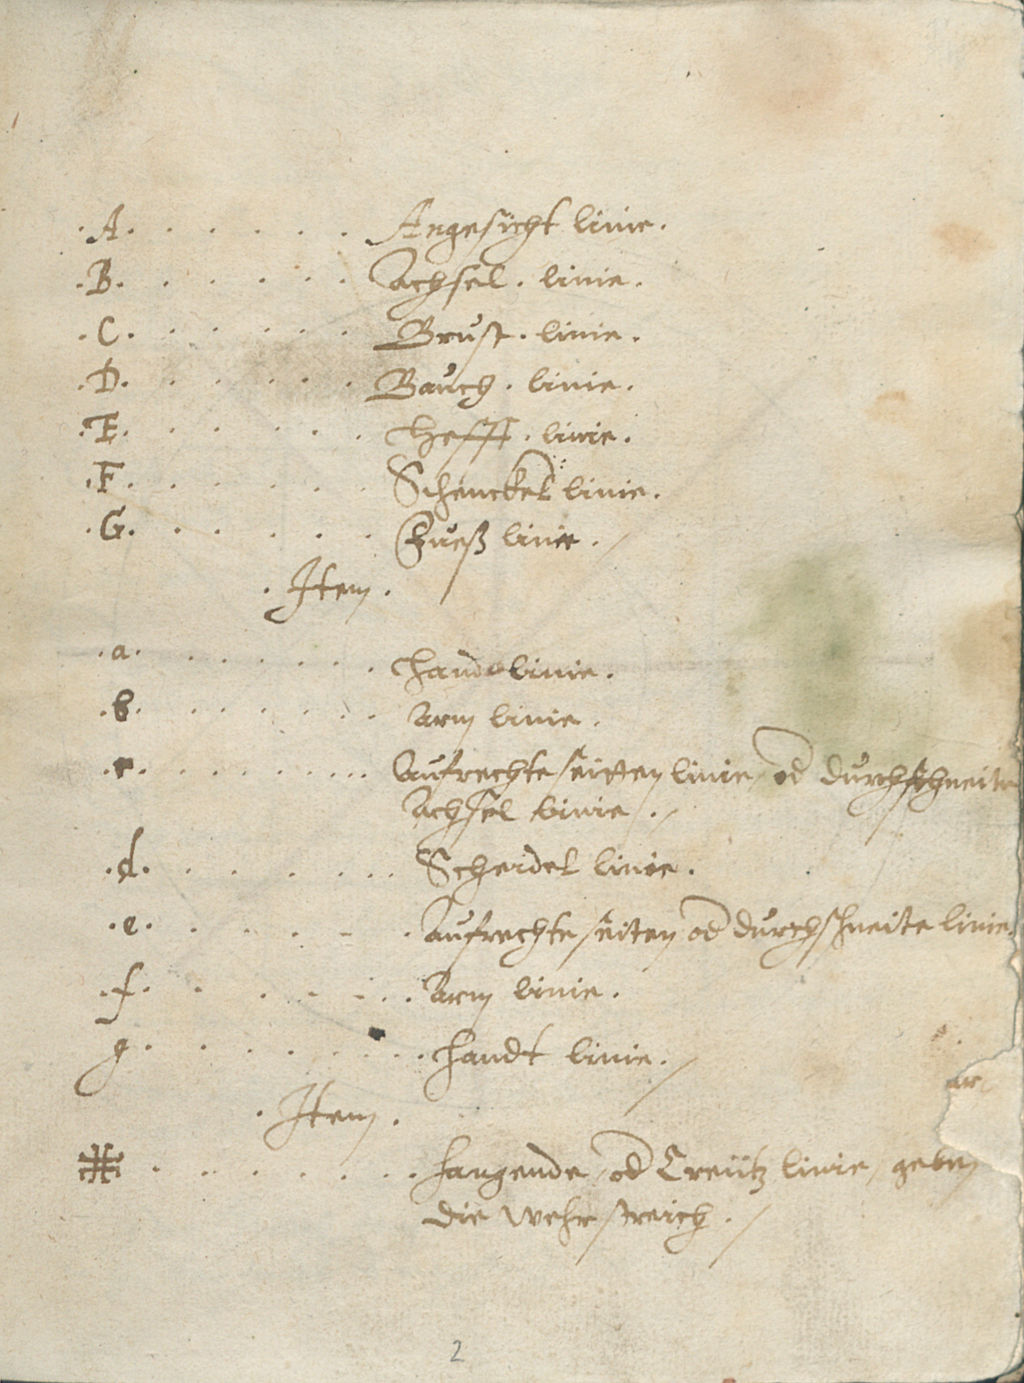 .A. . . . . . . Angesicht linie.
.B. . . . . . Achsel. linie.
.C. . . . . . Brust. linie.
.D. . . . . . Bauch. linie.
.E. . . . . . Hefft. linie.
.F. . . . . . Schenckel linie.
.G. . . . . . Fueß linie. /
. Item .
.a. . . . . . . Hand linie.
.b. . . . . . . Arm linie.
.c. . . . . . . . Aufrechte seitten linie, od durchschneite
Achsel linie. /
.d. . . . . . . Scheidel linie.
.e. . . . . - . Aufrechte seiten od durchschneite linie.
.f. . . - . . . Arm linie.
g. . . . . . . . Handt linie. /
. Item .
. . . . . . . hangende, od Creütz linie, geben
die wehr streich. /
2